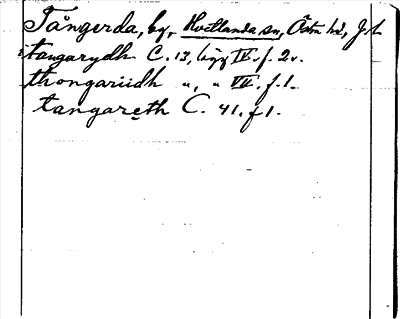 Tångerda, by, Hvetlanda sn, Östra hd, J.l.
i tangarydh C. 13, lägg IV. f. 2v.
thongariidh ", " VII. f. 1.
tangareth C. 41. f 1.